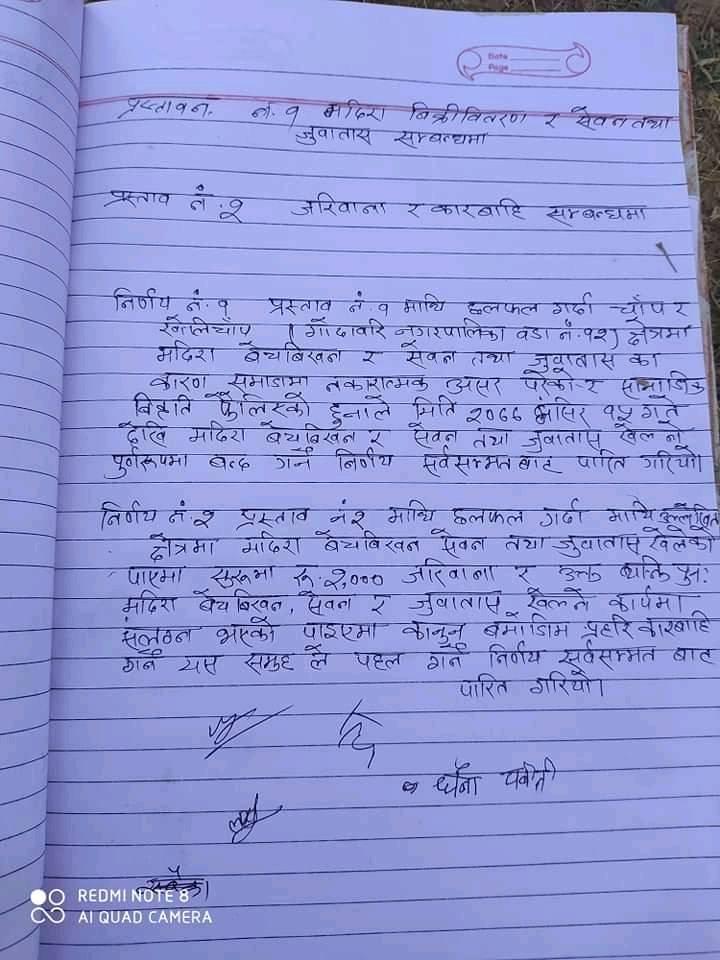 Date
Page
प्रस्तावन. नं. १ मदिरा बिक्रीवितरण र सेवन तथा
जुवातास सम्बन्धमा
प्रस्ताव नं. २ जरिवाना र कारबाहि सम्बन्धमा
निर्णय नं. १ प्रस्ताव नं. १ माथि छलफल गर्दा चाँप र
खोलिचाँप (गोदावरि नगरपालिका वडा नं. १२) क्षेत्रमा
मदिरा बेचबिखन र सेवन तथा जुवातास का
कारण समाजमा नकारात्मक असर परेको र सामाजिक
बिकृति फैलिएको हुनाले मिति २०७७ मंसिर १५ गते
देखि मदिरा बेचबिखन र सेवन तथा जुवातास खेल्न
पुर्णरूपमा बन्द गर्ने निर्णय सर्वसम्मत बाट पारित गरियो।
निर्णय नं. २ प्रस्ताव नं २ माथि छलफल गर्दा माथि उल्लेखित
क्षेत्रमा मदिरा बेचबिखन सेवन तथा जुवातास खेलेको
पाएमा सुरूमा रू. २,००० जरिवाना र उक्त ब्यक्ति पुन:
मदिरा बेचबिखन, सेवन र जुवातास खेल्ने कार्यमा
संलग्न भएको पाइएमा कानुन बमोजिम प्रहरि कारबाहि
गर्न यस समुह ले पहल गर्ने निर्णय सर्वसम्मत बाट
पारित गरियो।
REDMI NOTE 8
AI QUAD CAMERA